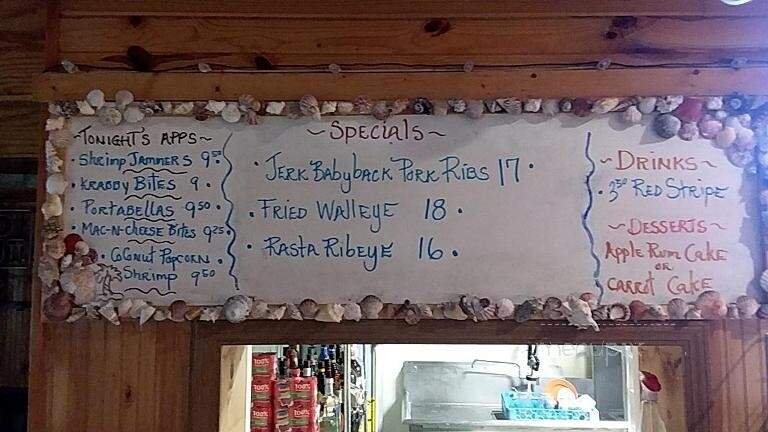 ~TONIGHT'S APPS~
• Shrimp JAMMERS 9⁵⁰
• KRABBY BITES 9 •
• PORTABELLAS 9⁵⁰ •
• MAC-N-CHEESE BITES 9²⁵ •
• COCONUT POPCORN •
Shrimp 9⁵⁰
~ SPECIALS ~
• JERK BABYBACK PORK RIBS 17 •
• FRIED WALLEYE 18 •
• RASTA RIBEYE 16 •
~ DRINKS ~
• 3⁵⁰ RED STRIPE
~ DESSERTS ~
APPLE RUM CAKE
OR
CARROT CAKE
100%
100%
100%
100%